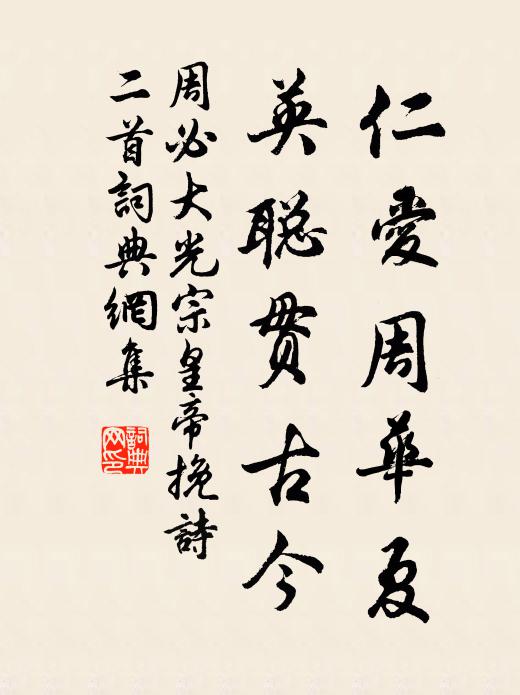 仁愛周華夏
英聪贯古今
周必大光宗皇帝挽詩
二首詞典網集
詞典網印